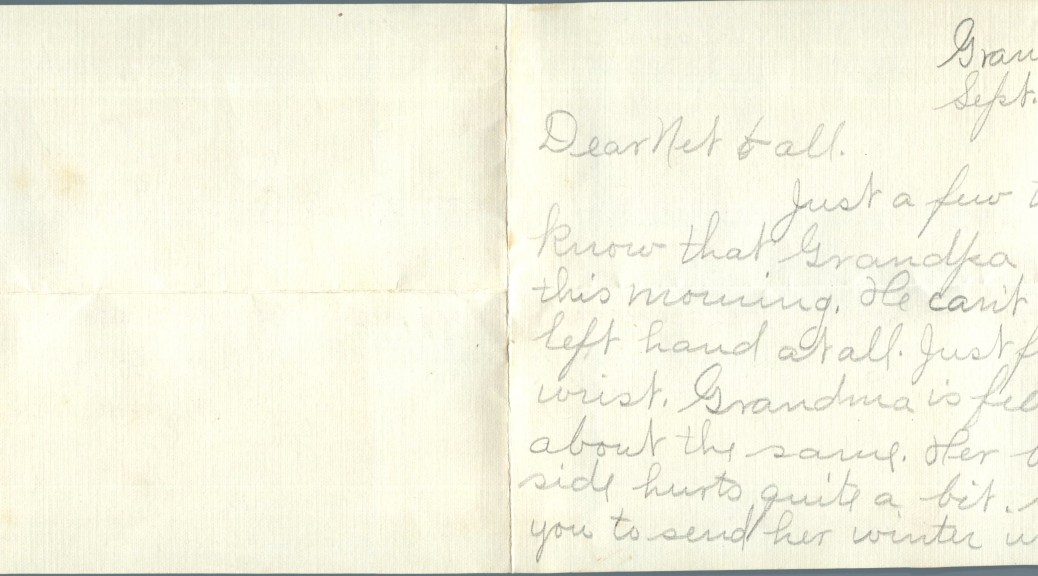 Gran
Sept.
Dear Net & all.
Just a few
know that Grandpa
this morning. He can't
left hand at all. Just f
wrist. Grandma is fee
about the same. Her
side hurts quite a bit.
you to send her winter